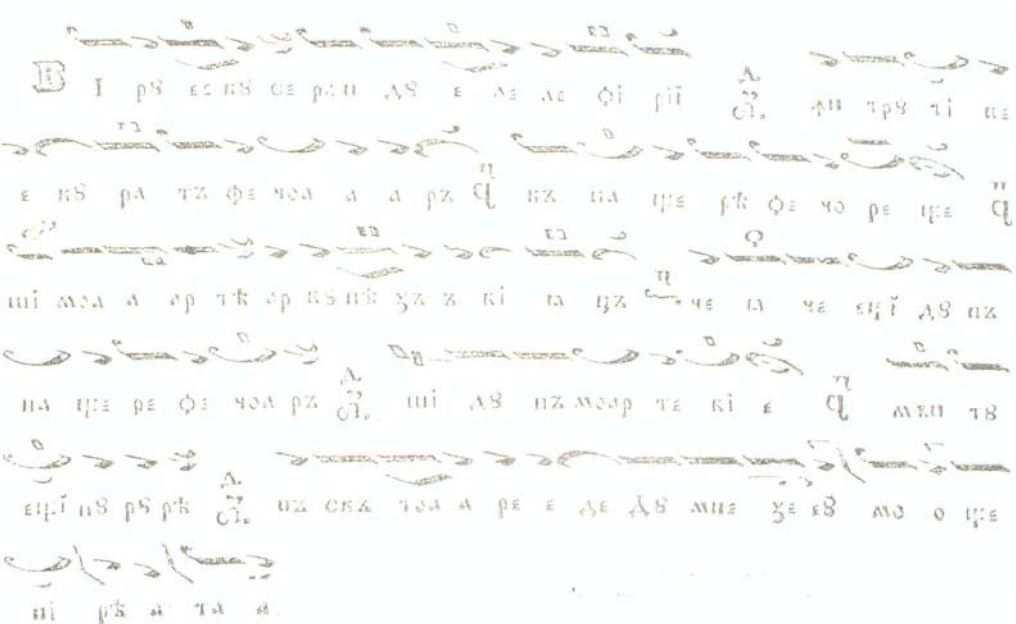 В І рꙋ ес кꙋ се ра п дꙋ е ле ле фі рїй фи трꙋ ті не
е кꙋ ра тъ фе чоа а а ръ къ на ще рѣ фе чо ре ще
ші моа а ар тѣ ар кꙋ нѣ ꙁъ ъ кі ꙗ цъ че ꙗ че ещї дꙋ пъ
на ще ре фе чоа ръ ші дꙋ пъ моар те кі е мъп тꙋ
ещї пꙋ рꙋ рѣ пъ скъ тоа а ре е де Дꙋ мне ꙁе еꙋ мо о ще
ні рѣ а та а.